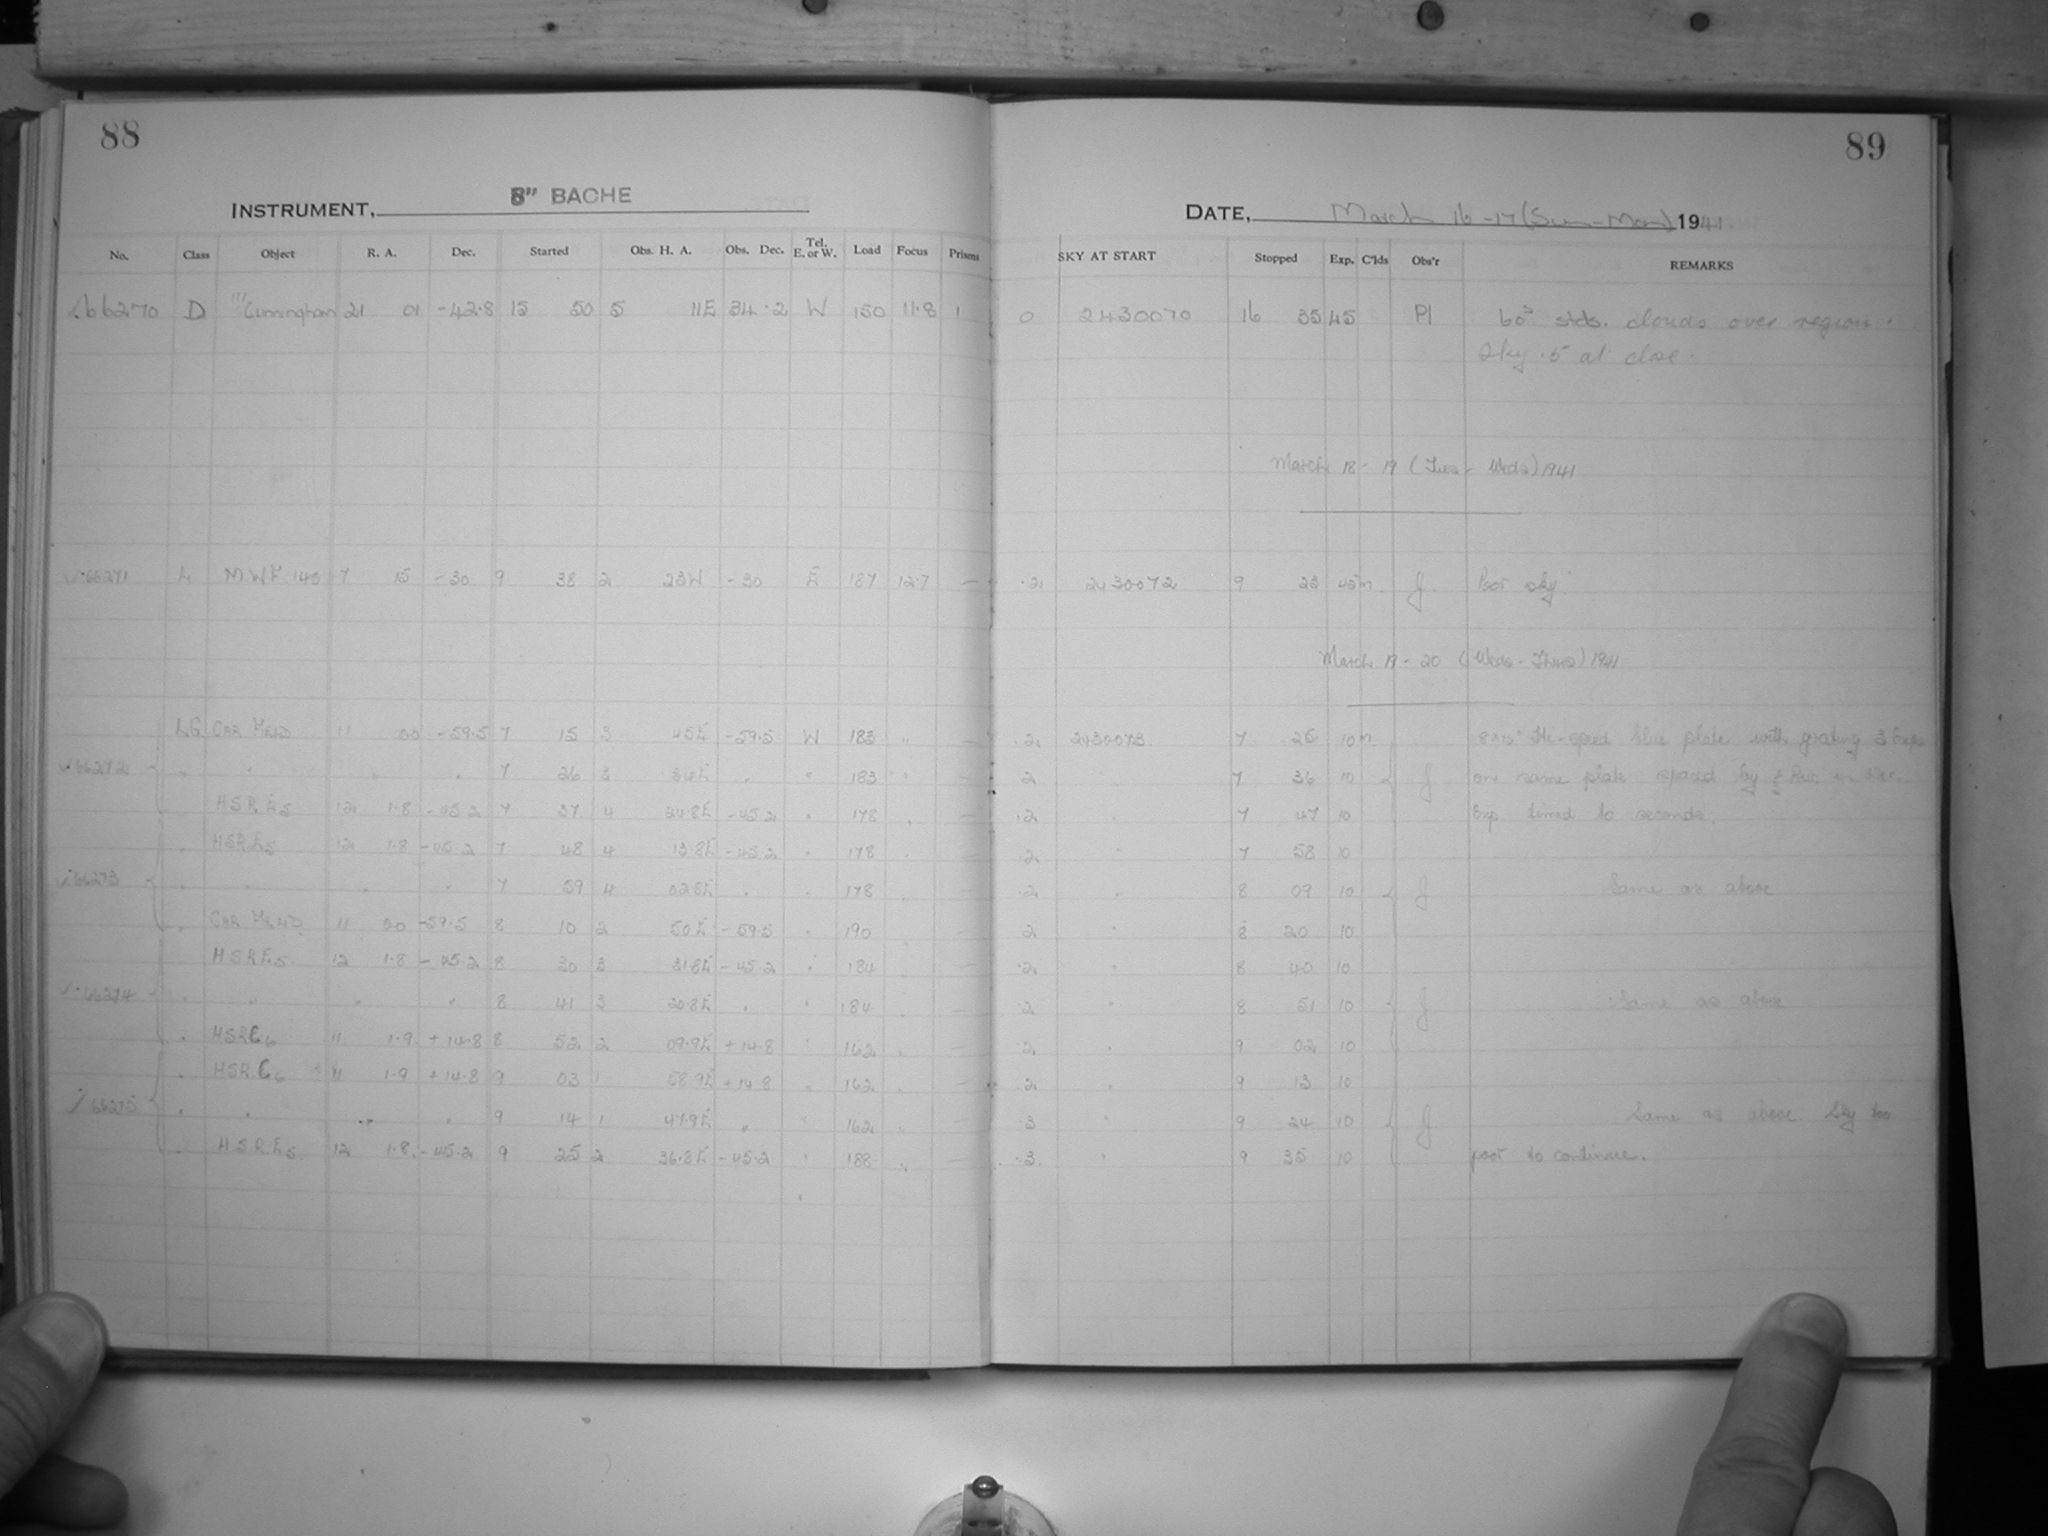 88
INSTRUMENT, 8" BACHE
No. Class Object R. A. Dec. Started Obs. H. A. Obs. Dec. Tel. E. or W. Load Focus Prisms
66270 D Cunningham 21 01 -42.8 15 50 5 11E 34.2 W 150 11.8 1
66271 L MWF 140 7 15 -30 9 38 2 23W -30 E 187 12.7 —
LG CAR 11 00 -59.5 7 15 3 45E -59.5 W 183 " —
66272 " " " " 7 26 3 34E " " 183 "
HSR E5 12 1.8 -45.2 7 37 4 24.8E -45.2 " 178 "
" HSR E5 12 1.8 -45.2 7 48 4 13.8E -45.2 " 178
66273 " " " " 7 59 4 02.8E " " 178
" CAR 11 00 -59.5 8 10 2 50E -59.5 " 190
HSR E5 12 1.8 -45.2 8 20 3 31.8E -45.2 " 184
66274 " " " " 8 41 3 20.8E " " 184
" HSR C6 11 1.9 +14.8 8 52 2 09.9E +14.8 " 162 "
" HSR C6 11 1.9 +14.8 9 03 1 58.9E +14.8 " 162 "
66275 " " " " 9 14 1 47.9E " " 162 "
" HSR E5 12 1.8 -45.2 9 25 2 36.8E -45.2 " 188 "
89
DATE, March 16-17 (Sun-Mon) 1941.
SKY AT START Stopped Exp. C'lds Obs'r REMARKS
0 2430070 16 35 45 Pl 60s stds. clouds over region.
Sky .5 at close.
March 18-19 (Tues-Weds) 1941
.2 2430072 9 23 45m J. Poor sky.
March 19-20 (Weds-Thurs) 1941
.2 2430073 7 25 10m 8x10" Hi-speed blue plate with grating 3 exps
2 7 36 10 J on same plate spaced by
.2 " 7 47 10 Exp timed to seconds.
.2 " 7 58 10
.2 " 8 09 10 J Same as above
2 " 8 20 10
.2 " 8 40 10
.2 " 8 51 10 J Same as above
.2 " 9 02 10
.2 " 9 13 10
.3 " 9 24 10 J Same as above. Sky too
.3 " 9 35 10 poor to continue.